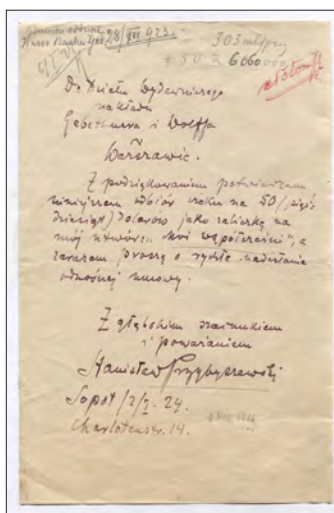 28/XII 923.-
303
$ 50 a 6060000
Do Działu Wydawniczego
nakładu
Gebethnera i Wolffa
Warszawie.
Z podziękowaniem potwierdzam
niniejszem odbiór czeku na 50 (pięć-
dziesiąt) dolarów jako zaliczkę na
mój utwór: "Moi współcześni", a
zarazem proszę o rychłe nadesłanie
odnośnej umowy.
Z głębokim szacunkiem
i poważaniem
Stanisław Przybyszewski
Sopot /2/I. 24.
Charlotenstr. 14.